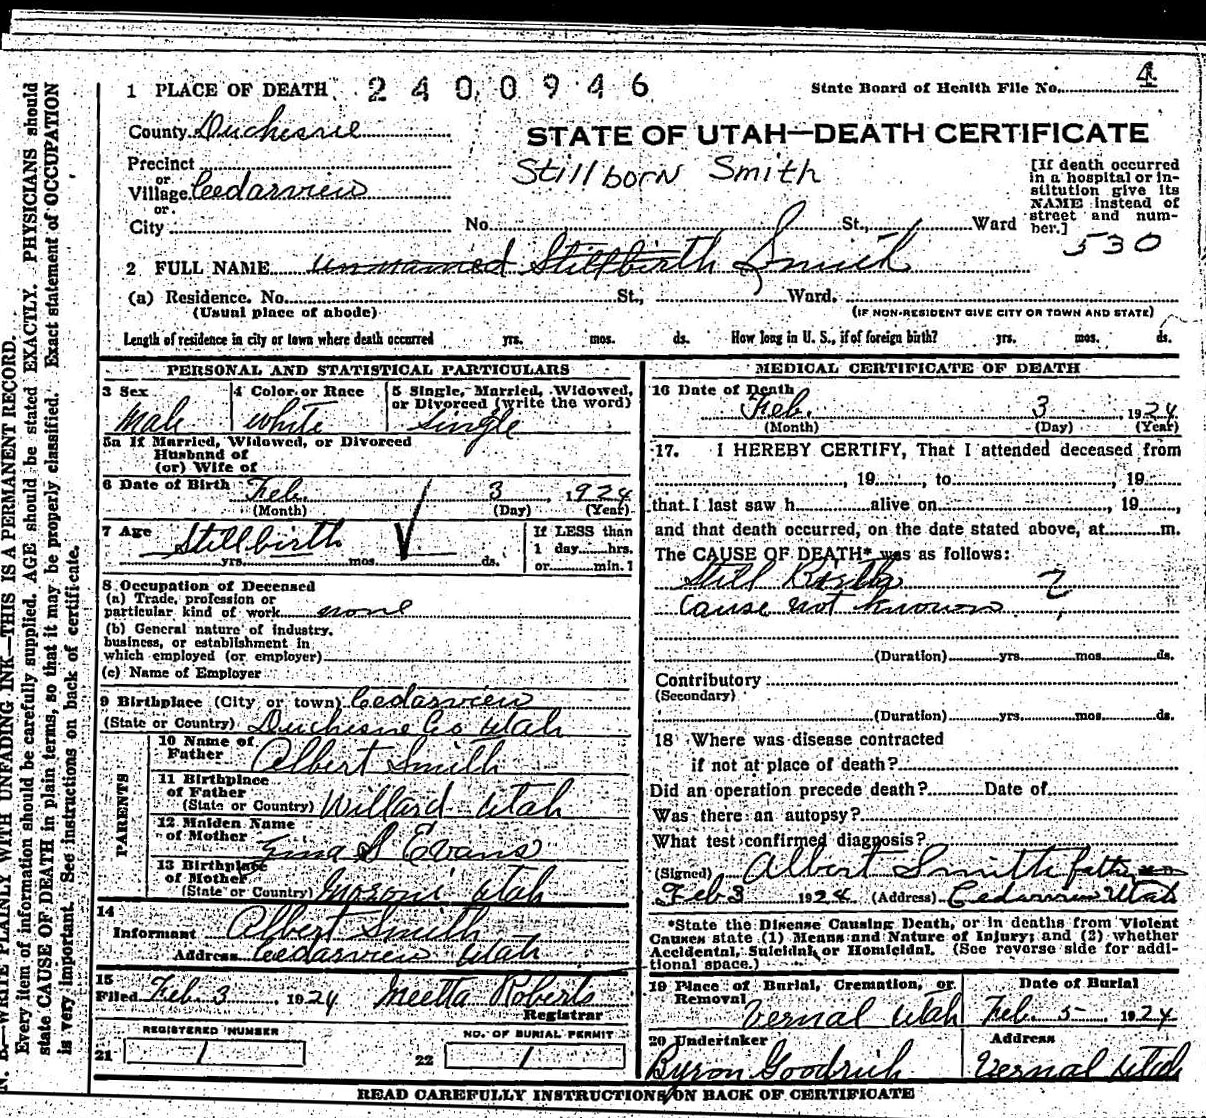 1 PLACE OF DEATH 2400946 State Board of Health File No. 4
County Duchesne
STATE OF UTAH—DEATH CERTIFICATE
Precinct
or
Village Cedarview
or
City
Stillborn Smith
[If death occurred
in a hospital or in-
stitution give its
NAME instead of
street and num-
ber.]
530
No. St., Ward
2 FULL NAME unnamed Stillbirth Smith
(a) Residence. No. St., Ward.
(Usual place of abode) (IF NON-RESIDENT GIVE CITY OR TOWN AND STATE)
Length of residence in city or town where death occurred yrs. mos. ds. How long in U. S., if of foreign birth? yrs. mos. ds.
PERSONAL AND STATISTICAL PARTICULARS
3 Sex
Male
4 Color or Race
white
5 Single, Married, Widowed,
or Divorced (write the word)
Single
5a If Married, Widowed, or Divorced
Husband of
(or) Wife of
6 Date of Birth Feb. 3, 1924
(Month) (Day) (Year)
7 Age Stillbirth
yrs. mos. ds.
If LESS than
1 day hrs.
or min.?
8 Occupation of Deceased
(a) Trade, profession or
particular kind of work none
(b) General nature of industry,
business, or establishment in
which employed (or employer)
(c) Name of Employer
9 Birthplace (City or town) Cedarview
(State or Country) Duchesne Co Utah
PARENTS
10 Name of
Father Albert Smith
11 Birthplace
of Father
(State or Country) Willard Utah
12 Maiden Name
of Mother S Evans
13 Birthplace
of Mother
(State or Country) Moroni Utah
14
Informant Albert Smith
Address Cedarview Utah
15
Filed Feb. 3 1924 Meetta Roberts
Registrar
REGISTERED NUMBER
21 1
NO. OF BURIAL PERMIT
22 1
MEDICAL CERTIFICATE OF DEATH
16 Date of Death
Feb. 3, 1924
(Month) (Day) (Year)
17. I HEREBY CERTIFY, That I attended deceased from
, 19 , to , 19
that I last saw h alive on , 19 ,
and that death occurred, on the date stated above, at m.
The CAUSE OF DEATH* was as follows:
Still Birth ?
Cause not known
(Duration) yrs. mos. ds.
Contributory
(Secondary)
(Duration) yrs. mos. ds.
18 Where was disease contracted
if not at place of death?
Did an operation precede death? Date of
Was there an autopsy?
What test confirmed diagnosis?
(Signed) Albert Smith father
Feb 3 1924 (Address) Cedarview Utah
*State the Disease Causing Death, or in deaths from Violent
Causes state (1) Means and Nature of Injury; and (2) whether
Accidental, Suicidal, or Homicidal. (See reverse side for addi-
tional space.)
19 Place of Burial, Cremation, or
Removal
Vernal Utah
Date of Burial
Feb. 5, 1924
20 Undertaker
Byron Goodrich
Address
Vernal Utah
READ CAREFULLY INSTRUCTIONS ON BACK OF CERTIFICATE
N. B.—WRITE PLAINLY WITH UNFADING INK—THIS IS A PERMANENT RECORD.
Every item of information should be carefully supplied. AGE should be stated EXACTLY. PHYSICIANS should
state CAUSE OF DEATH in plain terms, so that it may be properly classified. Exact statement of OCCUPATION
is very important. See instructions on back of certificate.